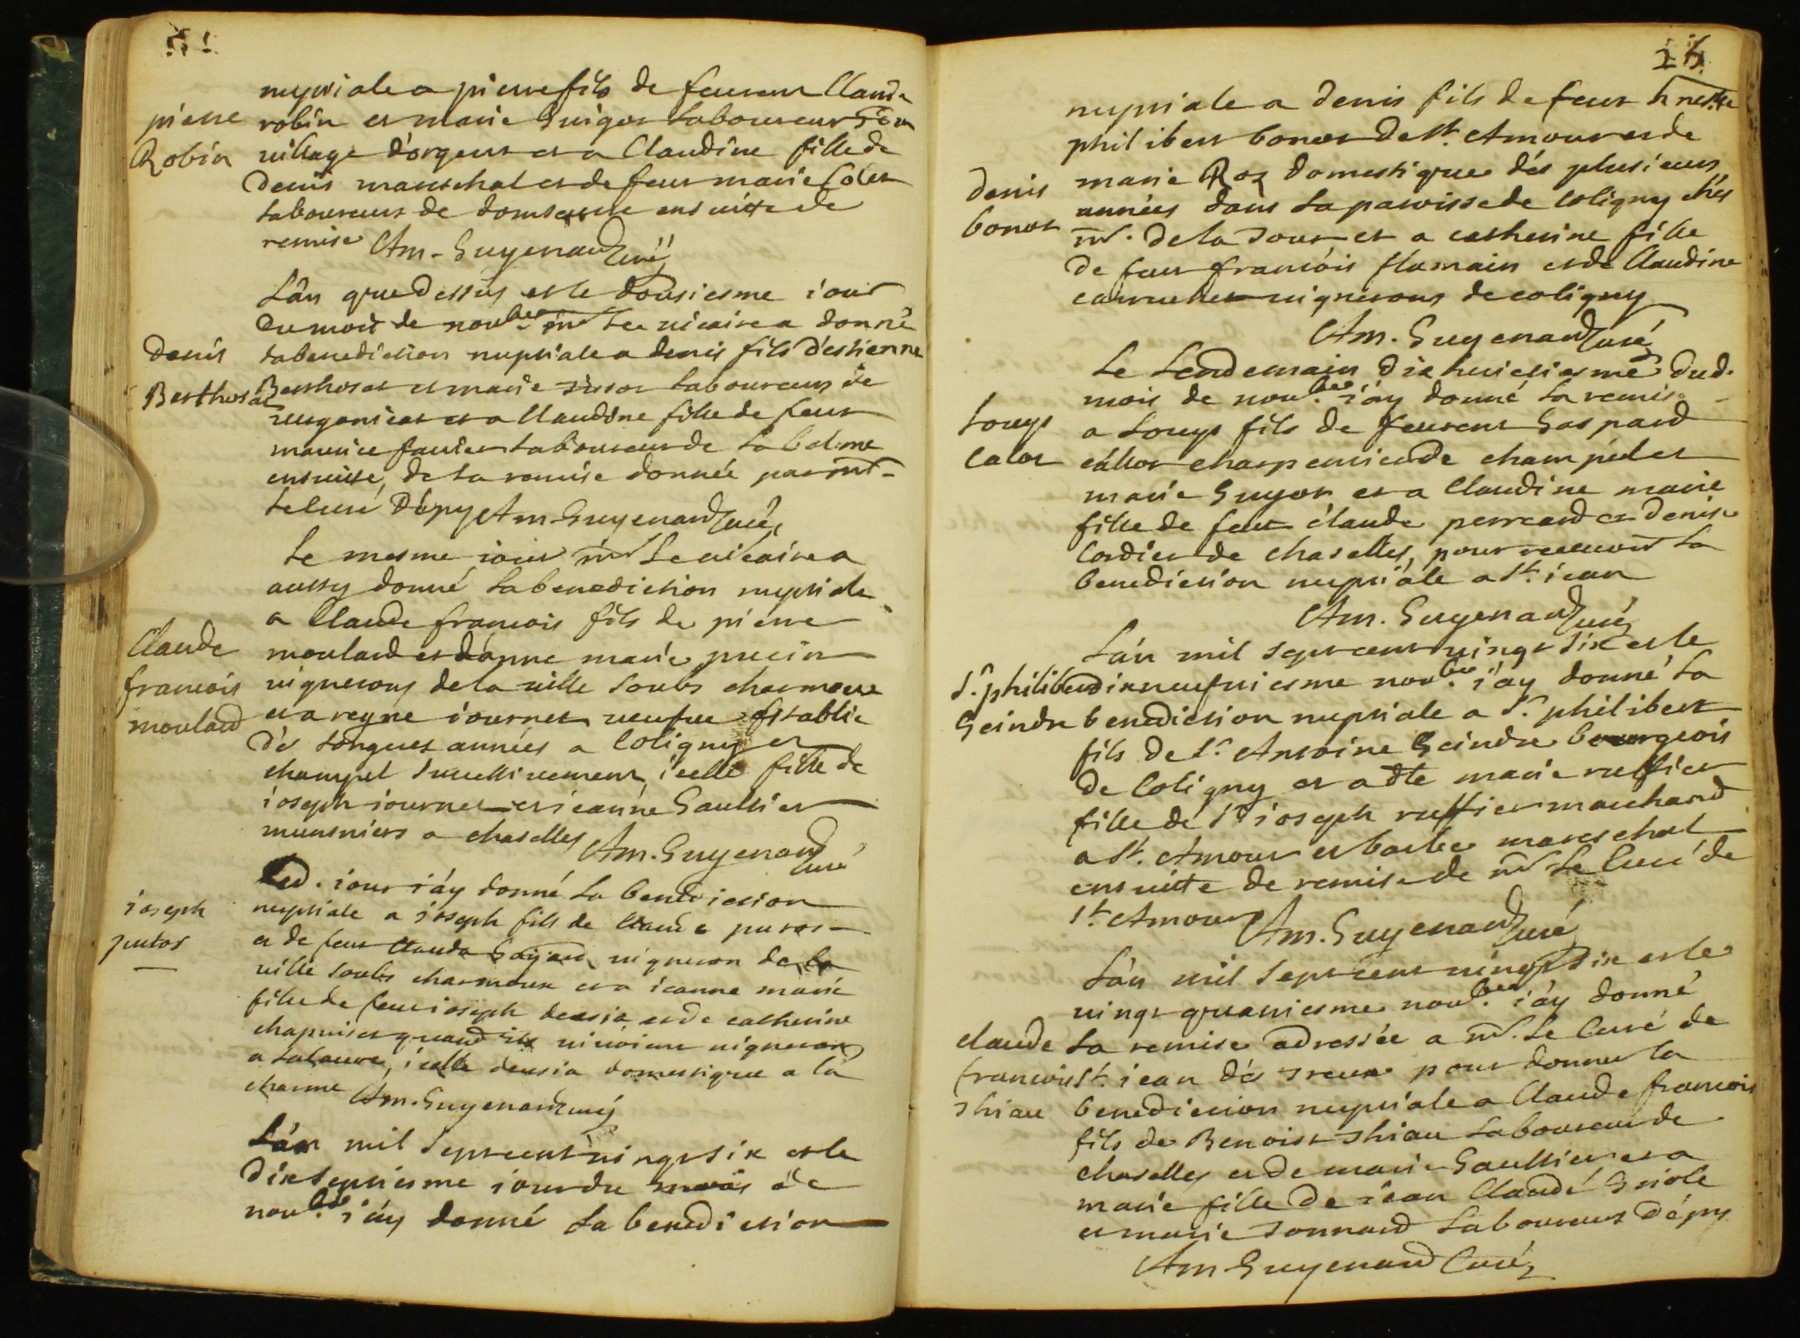 nuptiale a pierre fils de feurent Claude
pierre robin et marie guigot laboureur
Robin village d'orgeut et a Claudine fille de
denis mareschal et de feue marie
laboureurs de domsure ensuitte de
remise Am. Guyenard curé
L'an que dessus et le dousiesme iour
du mois de novbre mr le vicaire a donné
denis la benediction nuptiale a denis fils d'estienne
Berthoset Berthoset et marie laboureurs de
et a Claudine fille de feut
maurice laboureur de la balme
ensuitte de la remise donnée par mr
le curé d'épy Am. Guyenard curé
Le mesme iour mr le vicaire a
aussy donné la benediction nuptiale
a Claude francois fils de pierre
Claude moulard et d'anne marie
francois vignerons de la ville soubs charmoux
moulard et a reyne iournet veufve establie
dés longues années a Coligny et
champel successivement icelle fille de
ioseph iournet et ieanne Gaultier
musniers a chaselles Am. Guyenard
curé
Led. iour i'ay donné la benediction
ioseph nuptiale a ioseph fils de Claude putot
putot et de feue Claude vigneron de la
ville soubs charmoux et a ieanne marie
fille de feu ioseph et de catherine
chapuis et quand ils vivoient vignerons
a icelle domestique a la
charme Am. Guyenard curé
L'an mil sept cent vingt six et le
dixseptiesme iour du mois de
novbre i'ay donné la benediction
nuptiale a denis fils de feut
philibert bonot de St. Amour et de
denis marie Roz domestique dés plusieurs
bonot années dans la paroisse de Coligny chés
mr. de la tour et a catherine fille
de feut francois flamain et de Claudine
vignerons de coligny
Am. Guyenard curé
Le lendemain dix huictiesme dud.
mois de novbre i'ay donné la remise
Louys a Louys fils de feurent Gaspard
Calot callot charpentier de champél et
marie Guyot et a Claudine marie
fille de feut claude perreard et denise
Cordier de chaselles, pour recevoir la
benediction nuptiale a St. iean
Am. Guyenard curé
L'an mil sept cent vingt six et le
Sr. philibert dixneufviesme novbre i'ay donné la
Geindre benediction nuptiale a Sr. philibert
fils de Sr. Antoine Geindre bourgeois
de Coligny et a dlle marie ruffier
fille de Sr ioseph ruffier marchand
a St. Amour et barbe mareschal
ensuitte de remise de mr le Curé de
St. Amour Am. Guyenard curé
L'an mil sept cent vingt six et le
vingt quatriesme novbre i'ay donné
claude la remise adressée a mr. le Curé de
francois St. iean d'és treux pour donner la
Thiau benediction nuptiale a Claude francois
fils de Benoist Thiau laboureur de
chaselles et de marie Gaultier et a
marie fille de iean Claude Griole
et marie tonnard laboureurs d'épy
Am. Guyenard Curé